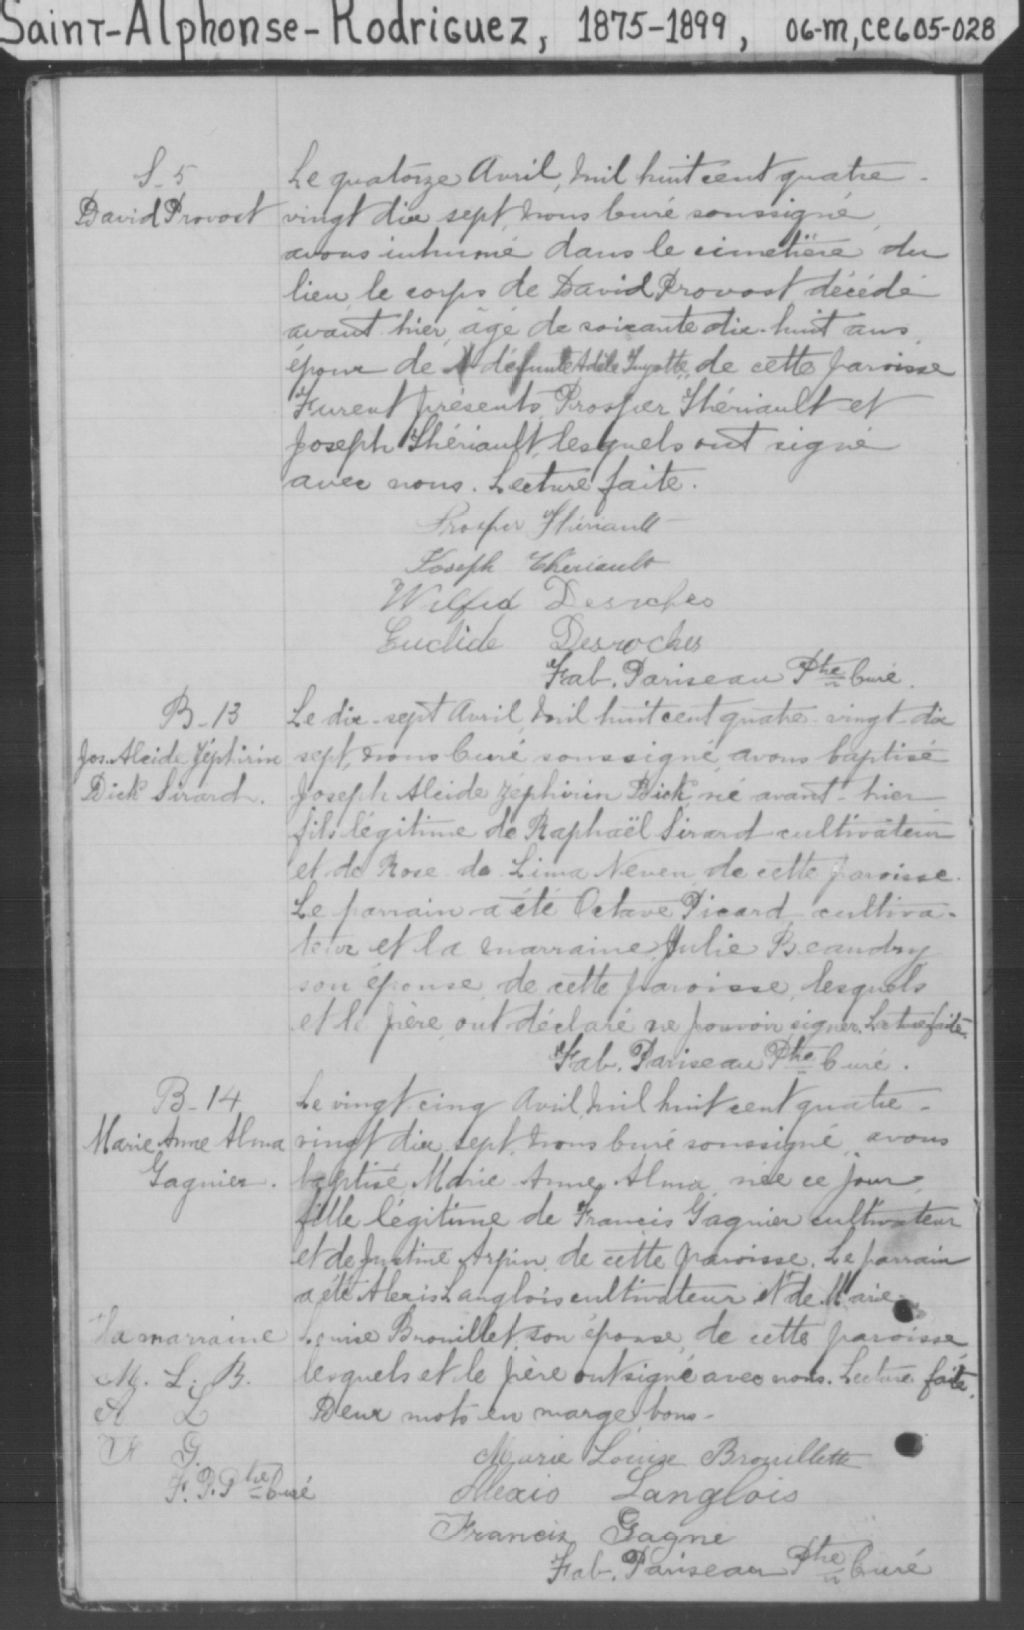 Saint-Alphonse-Rodriguez, 1875-1899, 06-M, CE605-028
S-5
David Provost
Le quatorze Avril, mil huit cent quatre-
vingt dix sept, nous Curé soussigné,
avons inhumé dans le cimetière du
lieu, le corps de David Provost, décédé
avant hier, âgé de soixante dix-huit ans,
époux de défunte Adèle Guyotte, de cette paroisse
Furent présents, Prosper Thériault et
Joseph Thériault, lesquels ont signé
avec nous. Lecture faite.
Prosper Thériault
Joseph Theriault
Wilfrid Desroches
Euclide Desroches
Fab. Pariseau Ptre Curé.
B-13
Jos. Alcide Zéphirin
Dick Sirard.
Le dix-sept Avril, mil huit cent quatre-vingt-dix
sept, nous Curé soussigné, avons baptisé
Joseph Alcide Zéphirin Dick, né avant-hier
fils légitime de Raphaël Sirard cultivateur
et de Rose de Lima Neven, de cette paroisse.
Le parrain a été Octave Picard, cultiva-
teur et la marraine Julie Beaudry
son épouse, de cette paroisse, lesquels
et le père, ont déclaré ne pouvoir signer. Lecture faite.
Fab. Pariseau Ptre Curé.
B-14
Marie Anne Alma
Gagnier.
Le vingt cinq Avril, mil huit cent quatre-
vingt dix sept, nous Curé soussigné, avons
baptisé, Marie Anne Alma, née ce jour,
fille légitime de Francis Gagnier cultivateur
et de Justine Arpin, de cette paroisse. Le parrain
a été Alexis Langlois cultivateur et de Marie
Louise Brouillet, son épouse, de cette paroisse
lesquels et le père ont signé avec nous. Lecture faite.
Deux mots en marge bons.
la marraine
M. L. B.
A L
G.
F. P. Ptre Curé
Marie Louise Brouillette
Alexis Langlois
Francis Gagne
Fab. Pariseau Ptre Curé